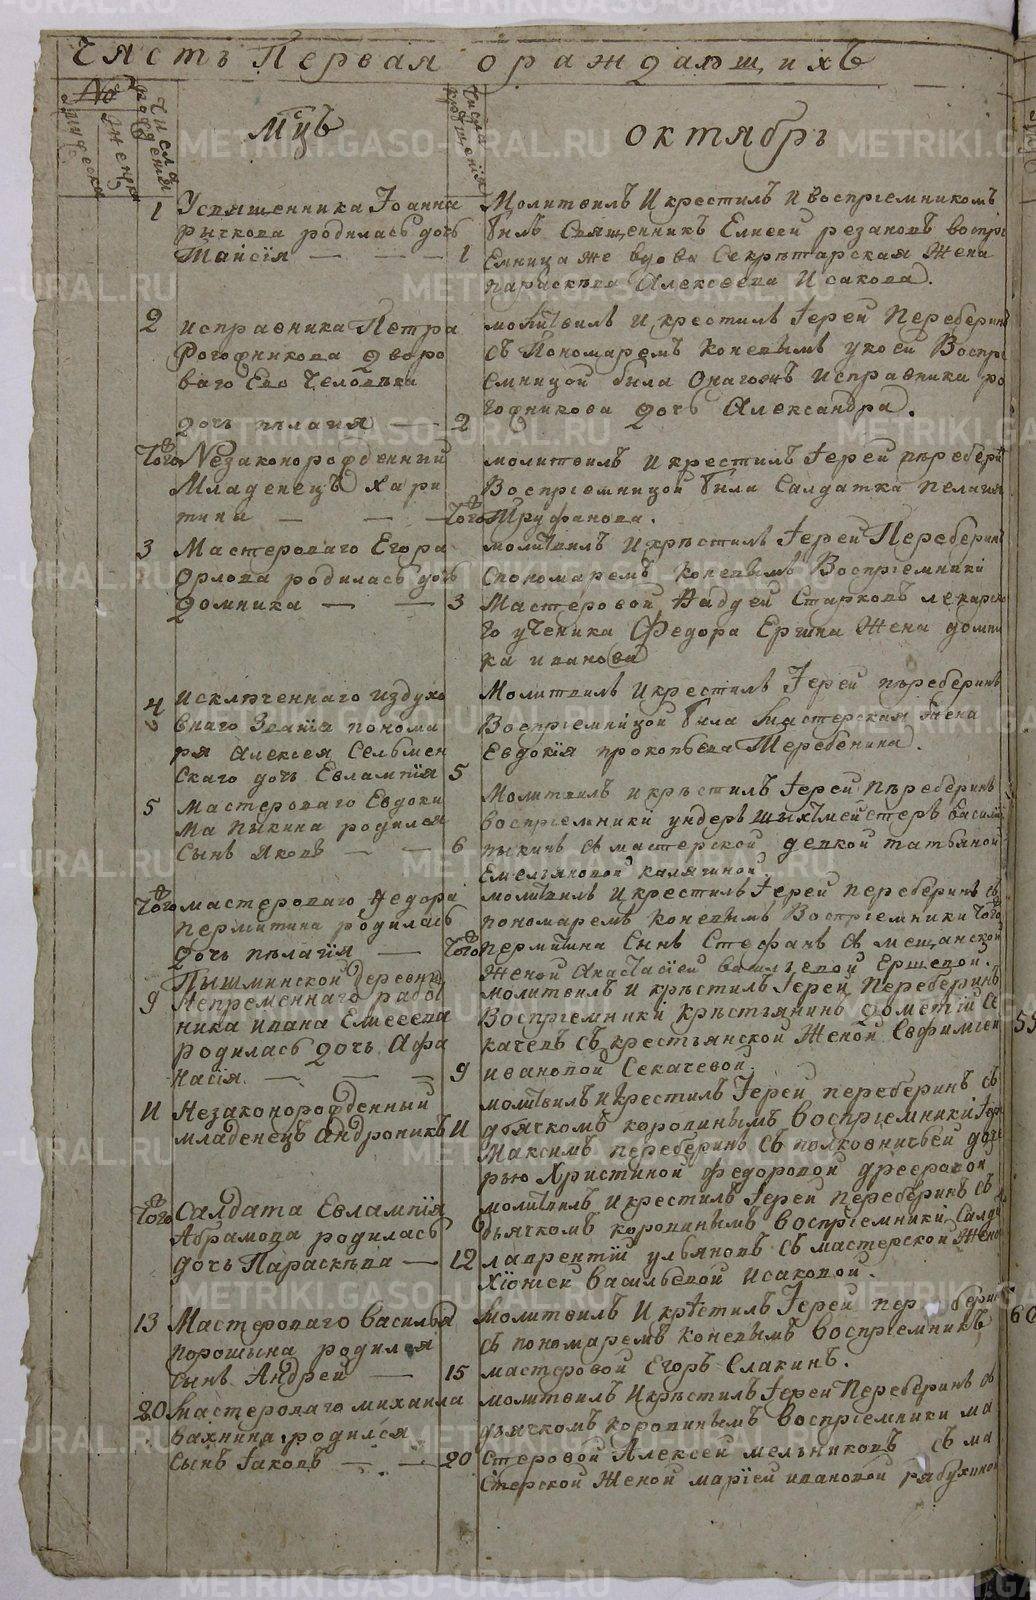 Часть Первая о раждающихъ
№
мужеска
женска
Числа рождения
Мцъ
Числа крещенiя
октябрь
1 У священника Iоанна
Рычкова родилась дочь
Таисiя — — — 1
Молитвилъ И крестилъ И воспрiемникомъ
былъ Священникъ Елисей резановъ воспрi
Емница же вдова Секрѣтарская Жена
параскѣва Алексеева Исакова.
2 исправника Петра
Рогожникова дворо
ваго Ево Человѣка
дочь пѣлагия — 2
молитвилъ И крестилъ Iерей Переберинъ
съ Пономаремъ Коневымъ у коей Воспрi
емницой была Онагожъ исправника ро
гожникова дочь Александра.
Того Незаконорожденный
Младенецъ хари
тины — — — Того
молитвилъ и крестилъ Iерей переберинъ
Воспрiемницой была Салдатка пелагия
Труфанова.
3 Мастероваго Егора
Орлова родилась дочь
домника — — 3
молитвилъ и крѣстилъ Iерей Переберинъ
с пономаремъ Коневымъ Воспрiемники
Мастеровой Авдей Старковъ лекарско
го ученика Федора Ершна Жена домни
ка иванова
4 исключеннаго из духо
внаго Званiя понома
ря Алексея Сельмен
скаго дочь Евлампiя 5
Молитвилъ И крестилъ Iерей пѣреберинъ
Воспрiемнiцой была Мастерская Жена
Евдокiя прокопьева Теребенина.
5 мастероваго Евдоки
ма Пыкина родился
Сынъ Яковъ — — 6
Молитвилъ и крѣстилъ Iерей Пѣреберинъ
воспрiемники ундеръ шихтмейстеръ Василiй
пыкинъ съ мастерской девкой татьяной
Емельяновой калягиной.
Того мастероваго Федора
пермитина родилась
дочь пѣлагiя — Того
молитвилъ И крестилъ Iерей переберинъ съ
пономаремъ Коневымъ Воспрiемники Того
пермитина Сынъ Стефанъ съ мещанской
Женой Анастасiей васильевой Ершевой.
Пышминской деревни
9 Непременнаго рабо
ника ивана Елисеева
родилась дочь Афа
насiя. — — — 9
молитвилъ и крѣстилъ Iерей Переберинъ
Воспрiемники крѣстьянинъ дометiй Се
качевъ съ крестьянской Женой Евфимiей
ивановой Секачевой.
11 Незаконорожденный
младенецъ андроникъ 11
молитвилъ и крестилъ Iерей переберинъ съ
дьячкомъ коровинымъ воспрiемники Iерей
Максимъ переберинъ съ полковничьей доче
рью Христиной федоровой
Того Салдата Евлампiя
Абрамова родилась
дочь Параскѣва — 12
молитвилъ И крестилъ Iерей переберинъ съ
дьячкомъ коровинымъ воспрiемники Салда
лаврентiй ульяновъ съ мастерской Жено
Хiонiей васильевой исаковой.
13 Мастероваго василья
порошына родился
сынъ Андрей — 15
Молитвилъ И крѣстилъ Iерей пер беринъ
съ пономаремъ коневымъ воспрiемникъ
мастеровой Егоръ Слакинъ.
20 Мастероваго михаила
вахнина родился
сынъ Iаковъ — — 20
молитвилъ И крѣстилъ Iерей Переберинъ съ
дьячкомъ коровинымъ воспрiемники ма
стеровой Алексей мельниковъ съ ма
стерской Женой марiей ивановой рябухиной